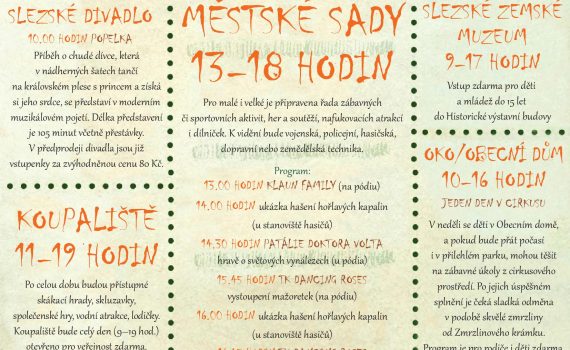 SLEZSKÉ DIVADLO
10.00 HODIN POPELKA
Příběh o chudé dívce, která
v nádherných šatech tančí
na královském plese s princem a získá
si jeho srdce, se představí v moderním
muzikálovém pojetí. Délka představení
je 105 minut včetně přestávky.
V předprodeji divadla jsou již
vstupenky za zvýhodněnou cenu 80 Kč.
KOUPALIŠTĚ
11–19 HODIN
Po celou dobu budou přístupné
skákací hrady, skluzavky,
společenské hry, vodní atrakce, lodičky.
Koupaliště bude celý den (9–19 hod.)
otevřeno pro veřejnost zdarma.
MĚSTSKÉ SADY
13–18 HODIN
Pro malé i velké je připravena řada zábavných
či sportovních aktivit, her a soutěží, nafukovacích atrakcí
i dílniček. K vidění bude vojenská, policejní, hasičská,
dopravní nebo zemědělská technika.
Program:
13.00 HODIN KLAUN FAMILY (na pódiu)
14.00 HODIN ukázka hašení hořlavých kapalin
(u stanoviště hasičů)
14.30 HODIN PATÁLIE DOKTORA VOLTA
hravě o světových vynálezech (u pódia)
15.45 HODIN TK DANCING ROSES
vystoupení mažoretek (na pódiu)
16.00 HODIN ukázka hašení hořlavých kapalin
(u stanoviště hasičů)
SLEZSKÉ ZEMSKÉ
MUZEUM
9–17 HODIN
Vstup zdarma pro děti
a mládež do 15 let
do Historické výstavní budovy
OKO/OBECNÍ DŮM
10–16 HODIN
JEDEN DEN V CIRKUSU
V neděli se děti v Obecním domě,
a pokud bude přát počasí
i v přilehlém parku, mohou těšit
na zábavné úkoly z cirkusového
prostředí. Po jejich úspěšném
splnění je čeká sladká odměna
v podobě skvělé zmrzliny
od Zmrzlinového krámku.
Program je pro rodiče i děti zdarma.